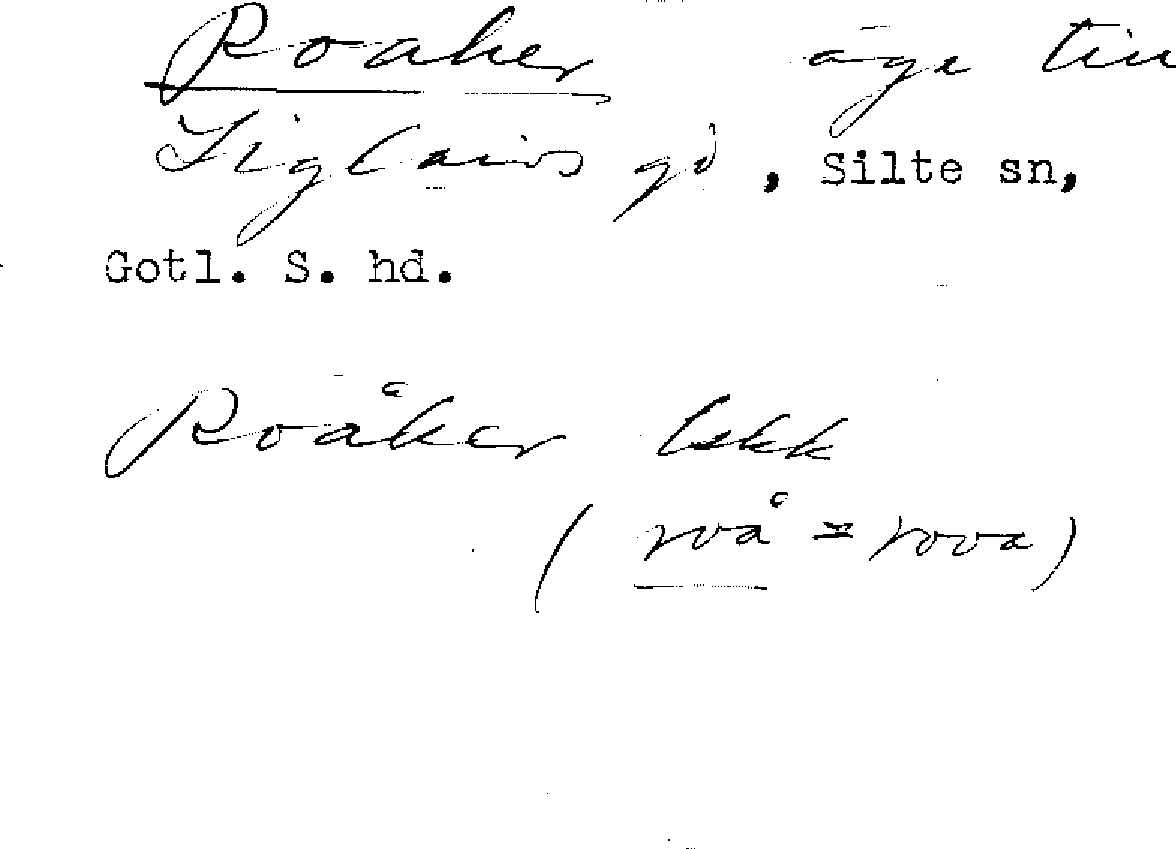 Roaker äga till
Siglaivs gd, Silte sn,
Gotl. S. hd.
Roåker lskk
(roå = rova)